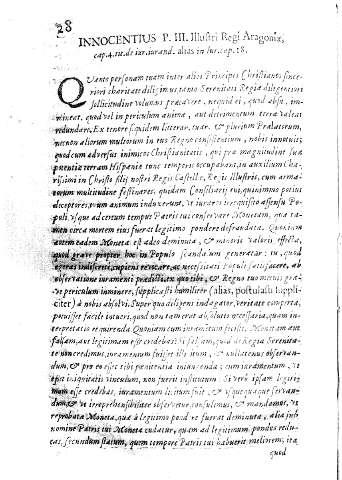 28
INNOCENTIUS P. III. Illustri Regi Aragoniæ,
cap. 4. tit. de iur. iurand. alias in lur. cap. 18.
Quanto personam tuam inter alios Principes Christianos sinceriori
charitate diligimus tanto Serenitati Regiæ diligentius
sollicitudine volumus præcavere, nequid ei, quod absit, immineat,
quod vel in periculum animæ, aut detrimentum terræ valeat
redundare. Ex tenore siquidem litterar. tuar. & plurium Prælatorum,
necnon aliorum multorum in tuo Regno consistentium, nobis innotuit:
quod cum adversus inimicos Christianitatis, qui præ magnitudine sua
potentiæ terram Hispaniæ tunc temporis occupabant, in auxilium Charissimi
in Christo filij nostri Regis Castellæ, Regis Illustris, cum armatorum
multitudine festinares, quidam Consiliarij tui, quinimmo potius
deceptores, tuum animum induxerunt, ut iurares irrequisito assensu Populi,
usque ad certum tempus Patris tui conservare Monetam, quæ tamen
circa mortem eius fuerat legitimo pondere defraudata. Quoniam
autem eadem Moneta est adeo deminuta, & minoris valoris effecta,
quod grave propter hoc in Populo scandalum generatur: tu, quod
egeras indiscrete, cupiens revocare, ac necessitati Populi satisfacere, ab
observatione iuramenti prædicti, ex quo tibi, & Regno tuo metuis grave
periculum imminere, supplicasti humiliter (alias, postulasti suppliciter)
à nobis absolvi. Super quo diligens indagator, veritate comperta,
potuisset facile intueri, quod non tam erat absolutio necessaria, quam interpretatio
requirenda. Quoniam cum iuramentum fecisti, Monetam aut
falsam, aut legitimam esse credebas. Si falsam, quod de Regia Serenitate
non credimus, iuramentum fuisset illicitum, & nullatenus observandum,
& pro eo esset tibi pœnitentia iniungenda; cum iuramentum, ut
esset iniquitatis vinculum, non fuerit institutum. Si vero ipsam legitimam
esse credebas, iuramentum licitum fuit, & usquequaque servandum,
& ut irreprehensibiliter observetur, consulimus, & mandamus, ut
reprobata Moneta, quæ à legitimo pondere fuerat deminuta, alia sub
nomine Patris tui Moneta cudatur, quam ad legitimum pondus reducas,
secundum statum, quem tempore Patris tui habuerit meliorem; ita
quod